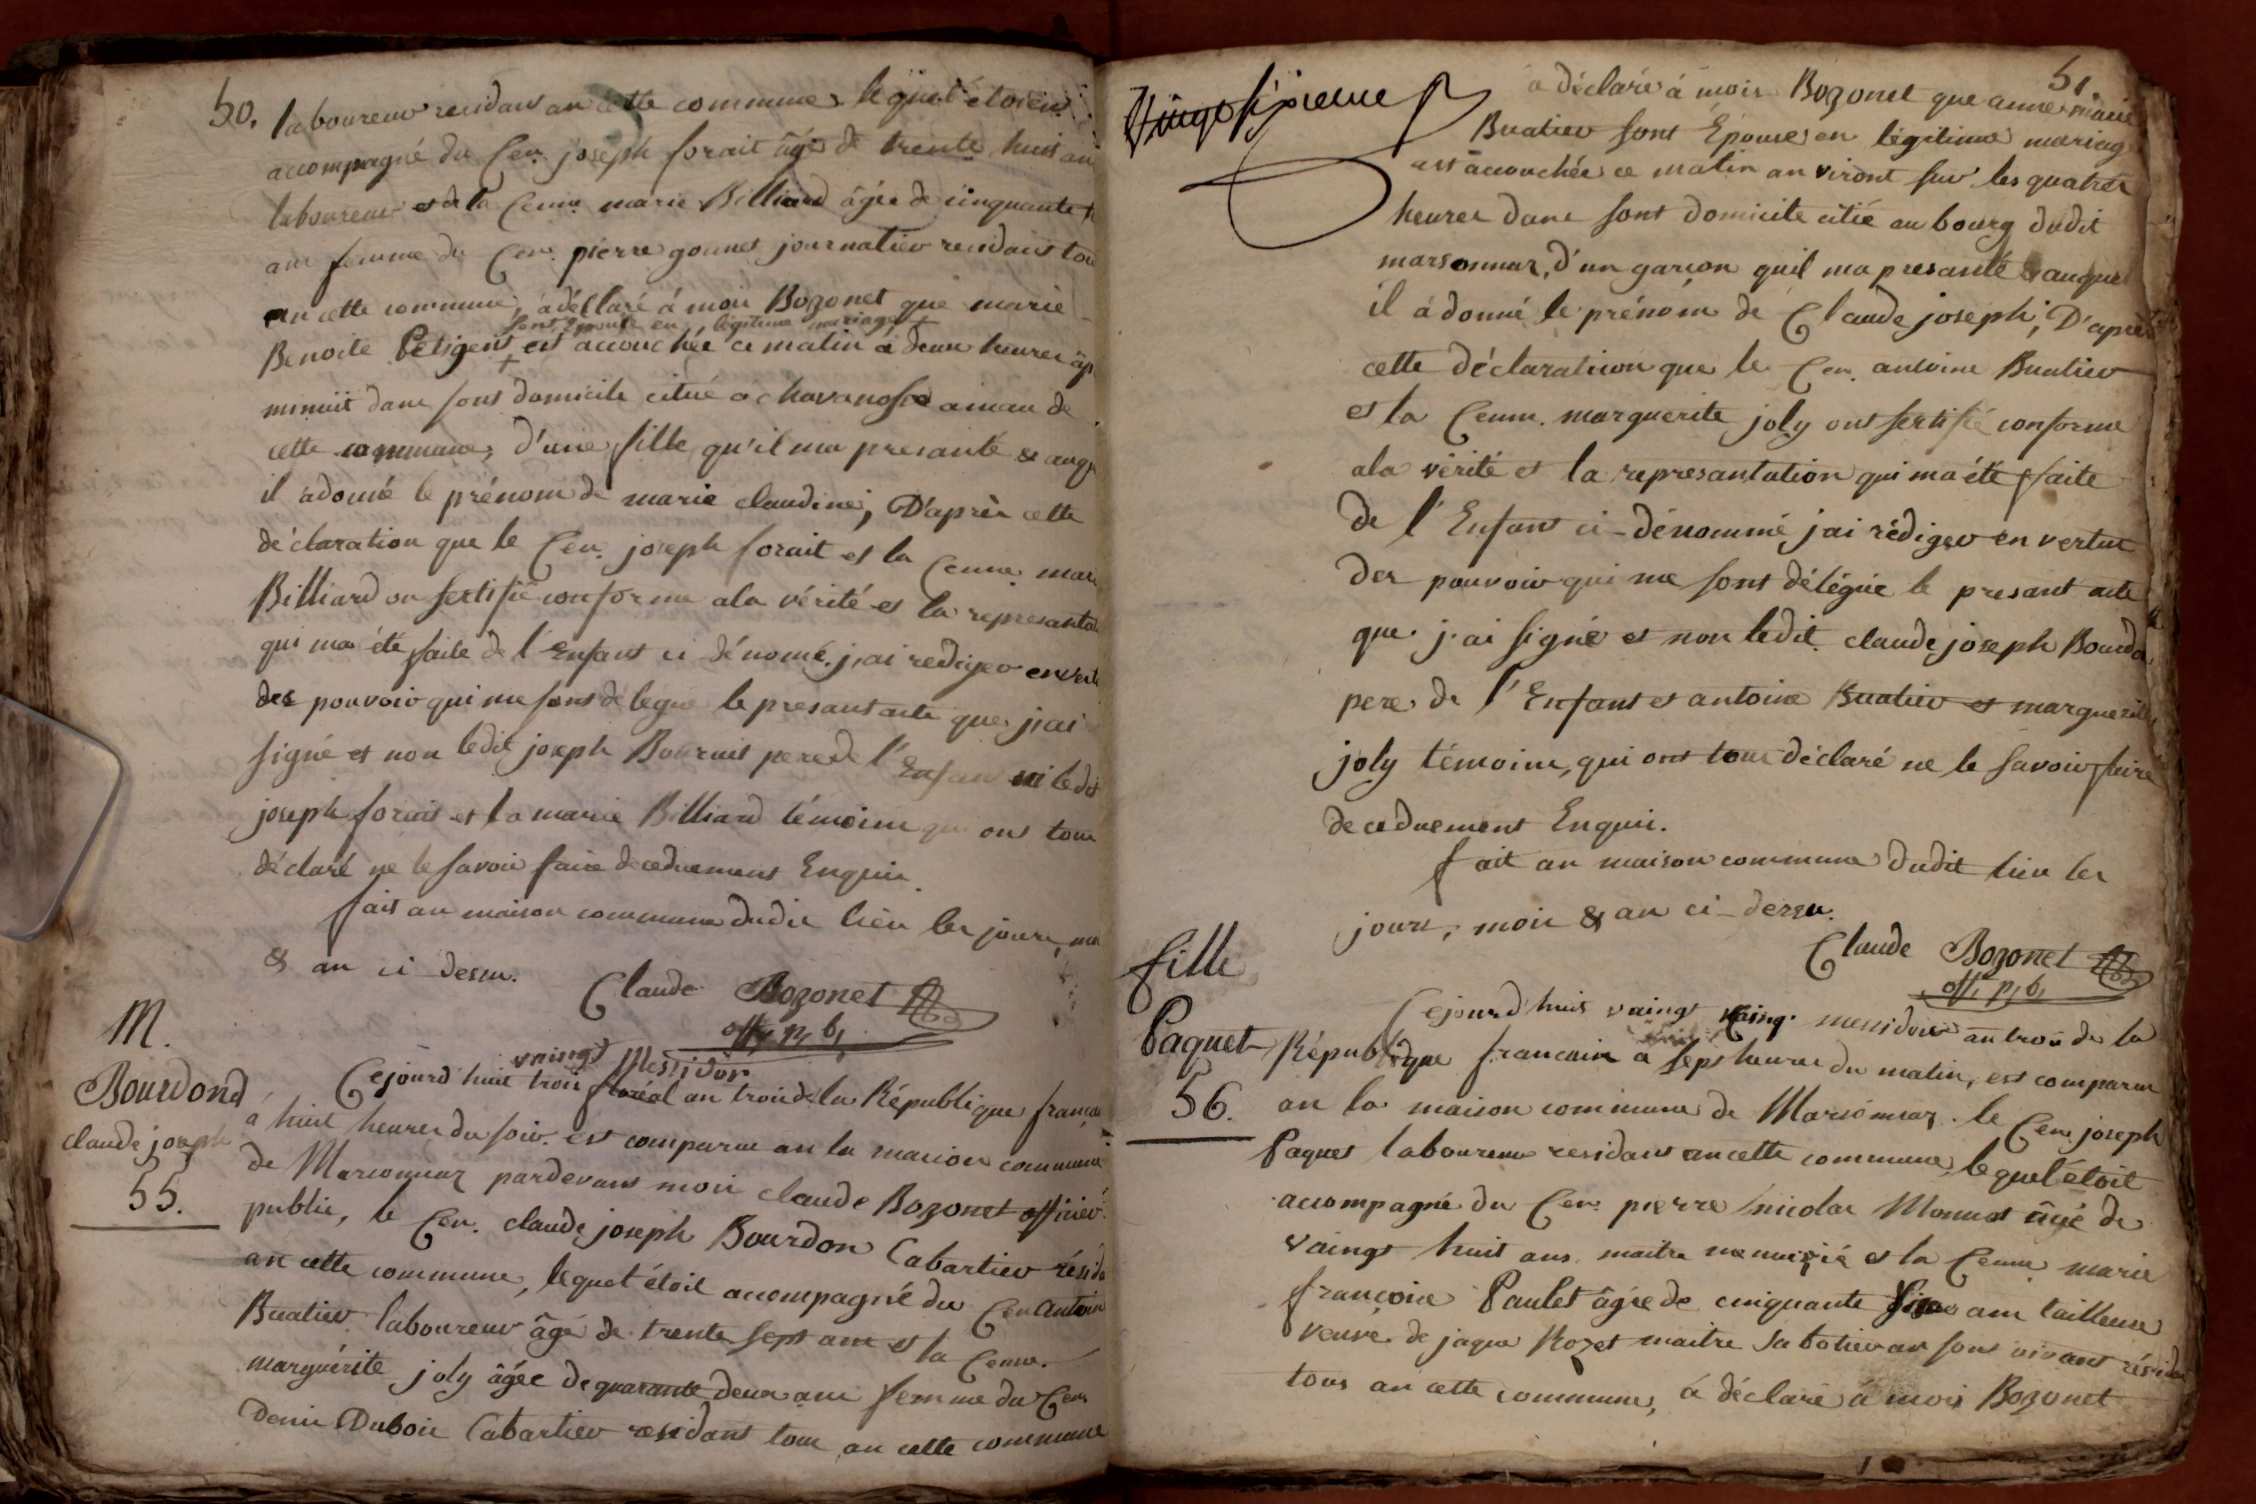 50.
laboureur residant an cette commune lequel étoien
accompagné du Cen. joseph forait âgé de trente huit an
laboureur et de la Cenne marie Billiard âgée de cinquante
ans femme du Cen. pierre gonnet journalier residant tou
an cette commune, a déclaré á mois Bozonet que marie
sont Epouse en légitime mariage
Benoite Petigent + est accouchée ce matin a deux heures ap
minuit dans sont domicile citué a chavanosse ameau de
cette commune, d'une fille qu'il ma presanté & auqu
il adonné le prénom de marie claudine, D'après cette
déclaration que le Cen. joseph forait et la Cenne mari
Billiard on sertifié conforme ala vérité et la represanta
qui ma été faite de l'Enfant ci dénomé, j'ai rediger en vert
des pouvoir qui me sont delegué le presant acte que j'ai
signé et non ledit joseph pere de l'Enfant ni ledit
joseph forait et la marie Billiard témoins qui ont tous
déclaré ne le savoir faire de ceduement Enquis.
fait an maison commune dudit lieu les jours, mo
& an ci desu.
Claude Bozonet
off, p, b,
M.
Bourdond
claude joseph
55.
vaingt Messidor
Cejourd'huit trois floréal an trois de la République françai
á huit heures du soir est comparue an la maison commune
de Marsonnaz pardevant mois claude Bozonet officier
public, le Cen. claude joseph Bourdon Cabartier résida
an cette commune, lequel étoit accompagné du Cen antoin
Buatier laboureur âgé de trente sept ans et la Cenne.
marguérite joly âgée de quarante deux ans femme du Cen
Denis Dubois Cabartier residant tous an cette commune
51.
a déclaré á mois Bozonet que anne marie
Buatier sont Épouse en légitime mariag
est accouchée ce matin an viront sur les quatre
heures dans sont domicile citié au bourg dudit
marsonnaz, d'un garçon quil ma presanté & auquel
il á donné le prénom de Claude joseph, D'après
cette déclaration que le Cen. antoine Buatier
et la Cenne. marguerite joly ont sertifié conforme
ala vérité et la represantation qui ma été faite
de l'Enfant ci-dénommé, j'ai rédiger en vertue
des pouvoir qui me sont délégué le presant acte
que j'ai signé et non ledit claude joseph Bourdo
pere de l'Enfant et antoine Buatier et marguerite
joly témoins, qui ont tous déclaré ne le savoir faire
de ceduement Enquis.
fait an maison commune dudit lieu les
jours, mois & an ci-desu.
Claude Bozonet
off, p, b,
fille
Paquet
56.
Cejourd'huit vaingt messidor an trois de la
République francaise a sept heures du matin, est comparue
an la maison commune de Marsonnaz le Cen. joseph
Paquet laboureur residant an cette commune, lequel étoit
accompagné du Cen. pierre nicolas Monnet âgé de
vaingt huit ans maitre menuisié et la Cenne marie
françoise Paulet âgée de cinquante ans tailleuse
veuve de jaque Rozet maitre sabotier an sont vivant résidan
tous an cette commune, á déclaré á mois Bozonet